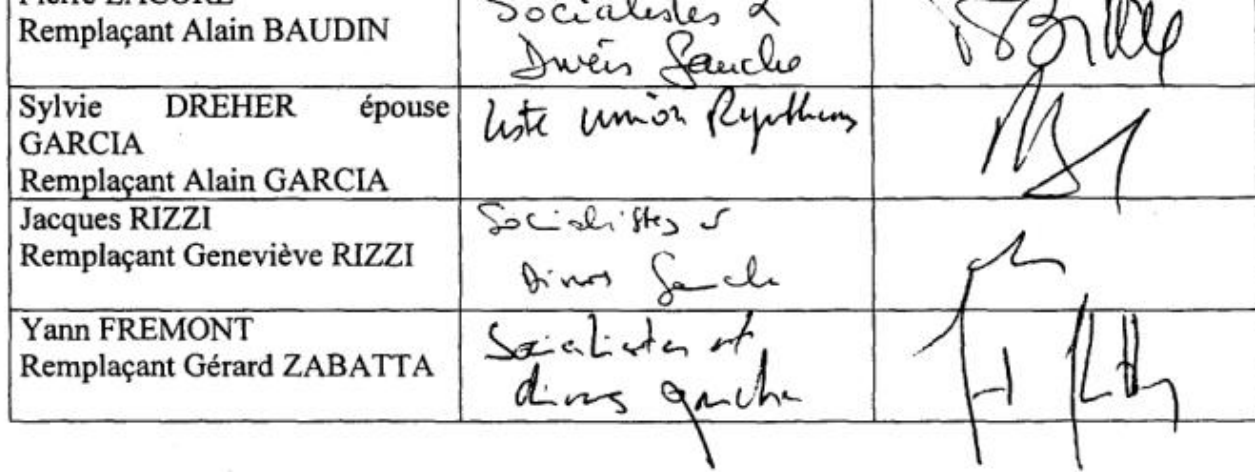 Remplaçant Alain BAUDIN
Socialistes &
Divers Gauche
Sylvie DREHER épouse
GARCIA
Remplaçant Alain GARCIA
Liste union
Jacques RIZZI
Remplaçant Geneviève RIZZI
Socialistes &
Divers Gauche
Yann FREMONT
Remplaçant Gérard ZABATTA
Socialistes et
divers gauche